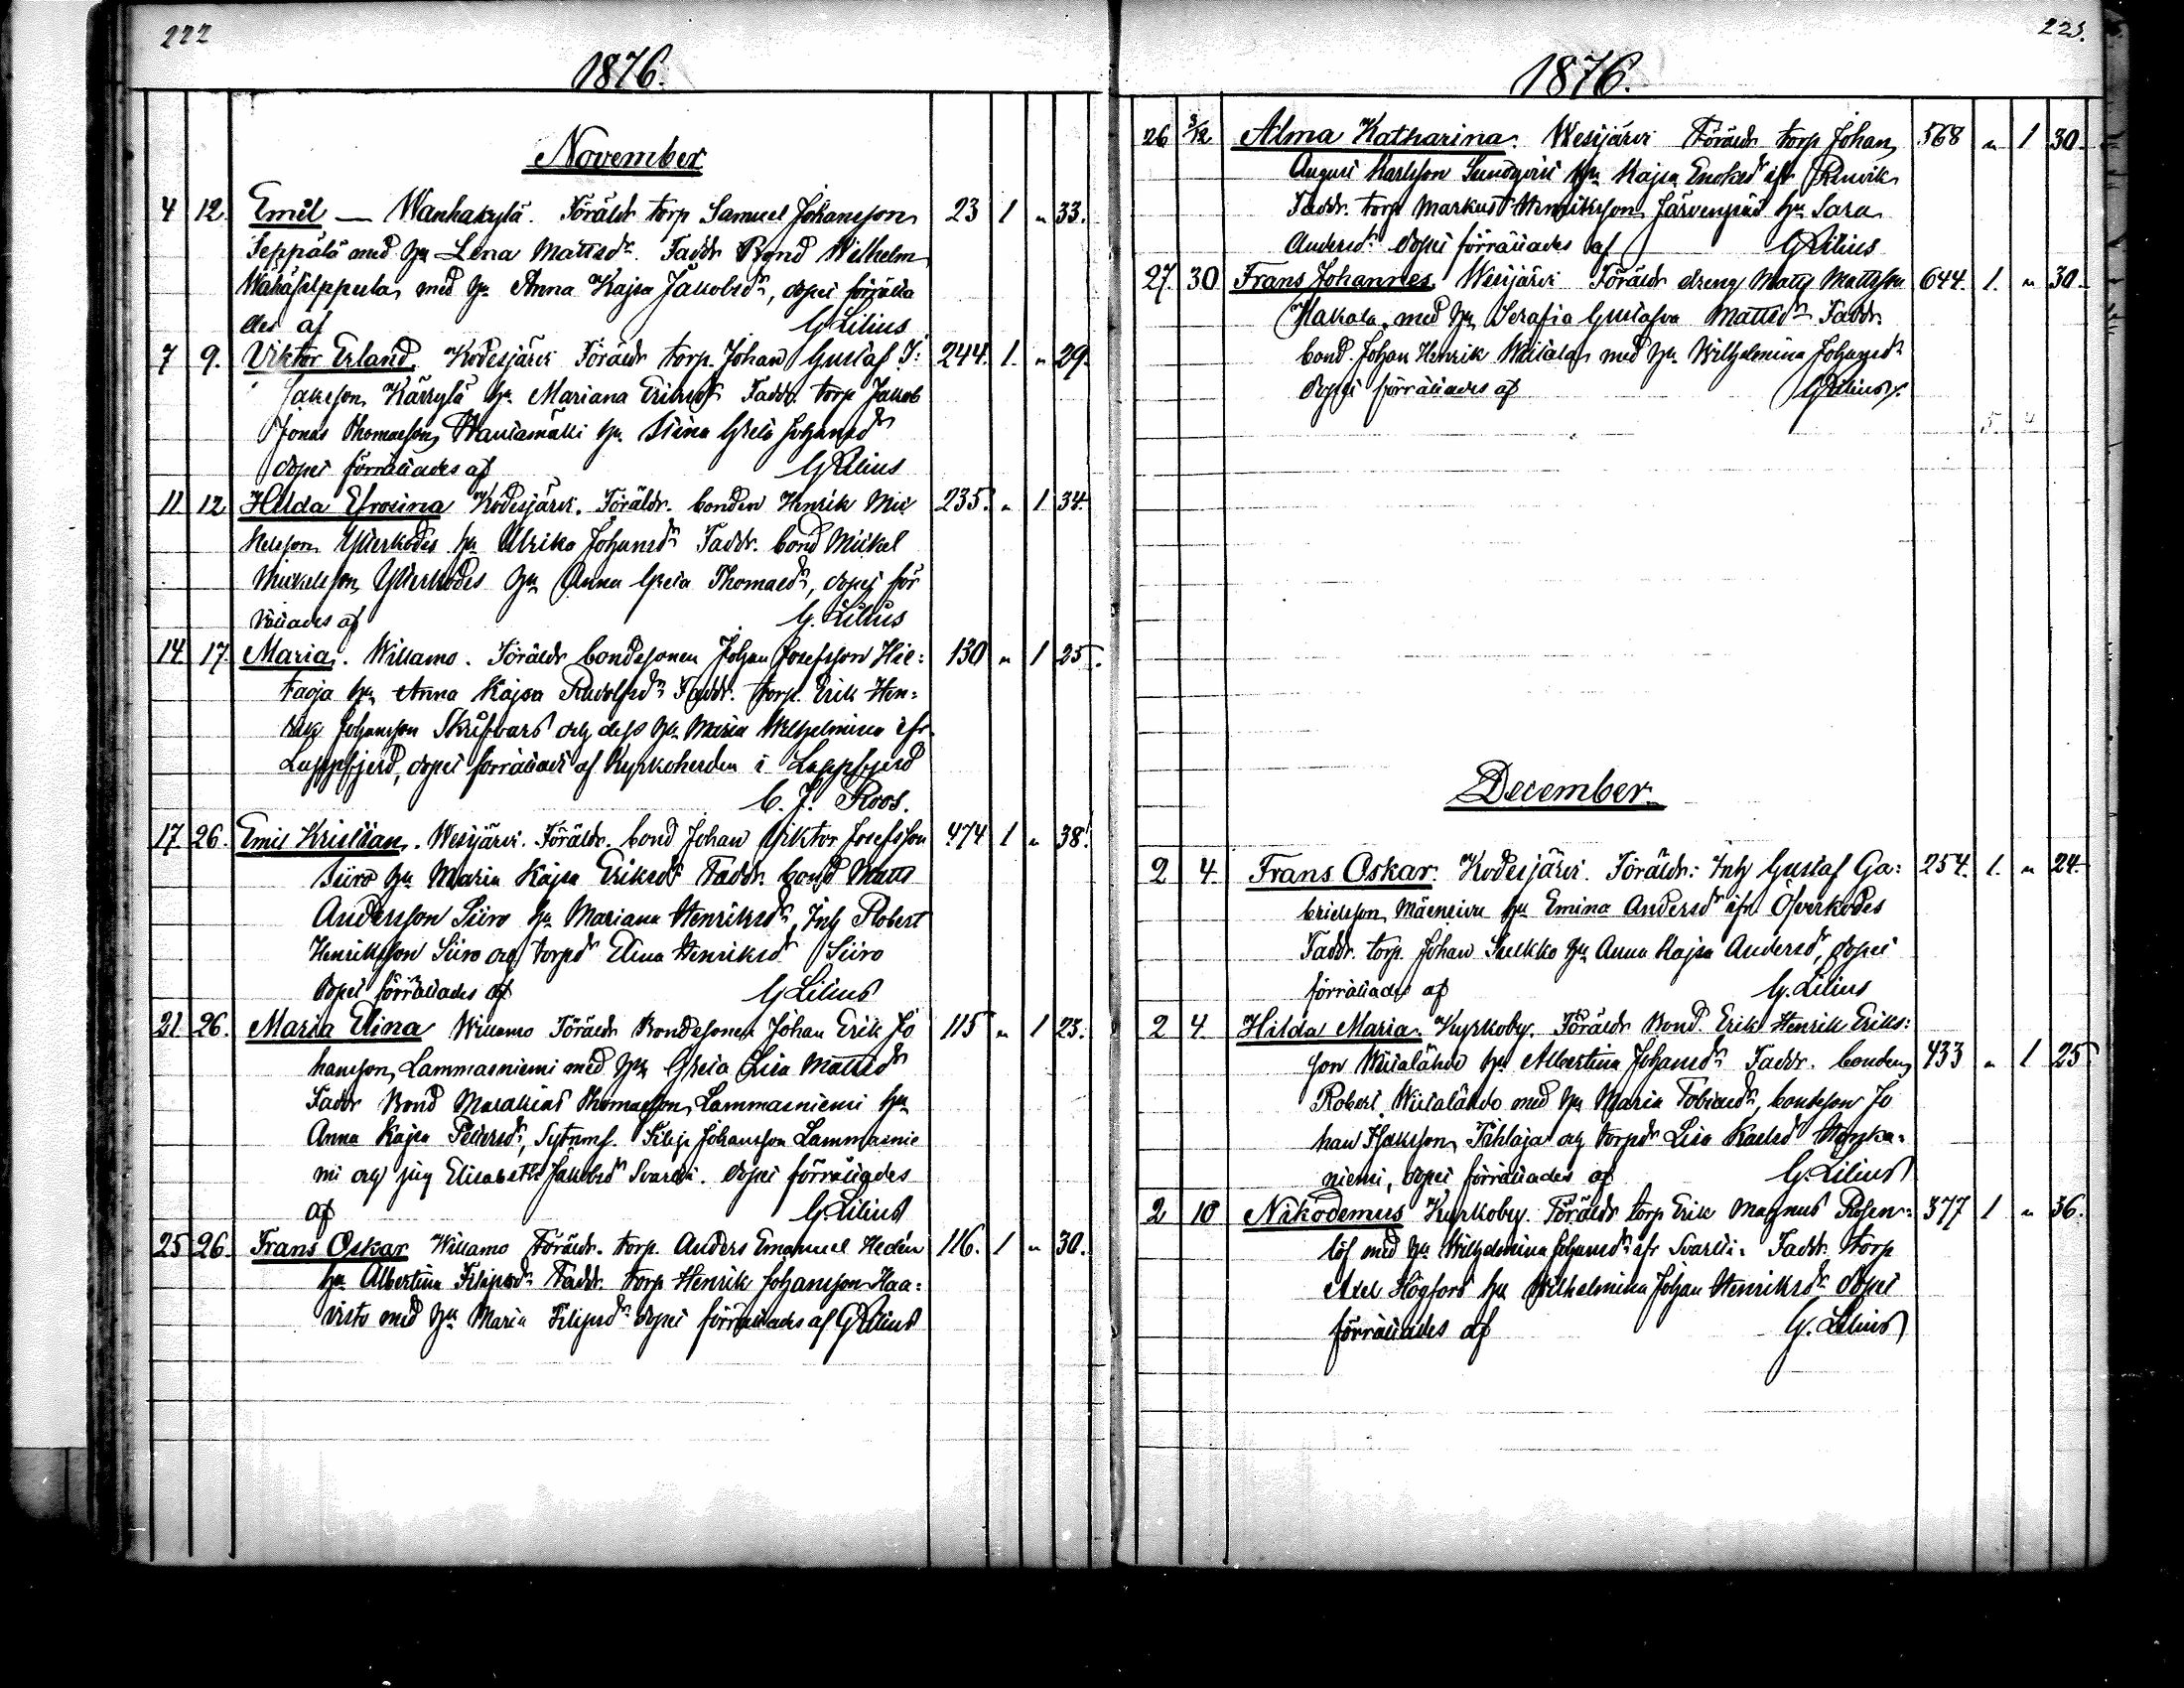 222
1876.
November
4 12. Emil — Wanhakylä. Föräldr torp Samuel Johansson 23 1 " 33.
Seppälä med hu Lena Mattsdr. Faddr Bond Wilhelm
med hu Anna Kajsa Jakobsdr, dopet förrätta
des af G Lilius
7 9. Viktor Erland. Kodesjärvi Föräldr torp. Johan Gustaf I: 244. 1. " 29.
sakson Kärrylä hu Mariana Eriksdr Faddr. torp Jakob
Jonas Thomasson hu Stina Greta Johansdr
dopet förrättades af G Lilius
11 12 Hilda Efrosina Kodesjärvi. Föräldr. bonden Henrik Mic 235. " 1 34.
kelsson Ytterkodes hu Ulrika Johansdr Faddr. bond Mickel
Mickelsson Ytterkodes hu Anna Greta Thomasdr, dopet för
rättades af G. Lilius
14. 17. Maria. Willamo. Föräldr bondesonen Johan Josefsson Hie: 130 " 1 25.
taoja hu Anna Kajsa Rudolfsdr Faddr. torp. Erik Hen=
rik Johansson Skriftbars och dess hu Maria Wilhelmina ifr
Lappfjerd, dopet förrättadt af Kyrkoherden i Lappfjerd
C. J. Roos.
17. 26. Emil Kristian. Wesijärvi. Föräldr. bond Johan Viktor Josefsson 474 1 " 38.
Siiro hu Maria Kajsa Eriksdr Faddr. bond Matts
Andersson Siiro hu Mariana Henriksdr, Inh Robert
Henriksson Siiro och torpdr Elina Henriksdr Siiro
dopet förrättades af G Lilius
21 26. Maria Elina Willamo Föräldr Bondesonen Johan Erik Jo 115 " 1 23.
hansson Lammasniemi med hu Greta Lisa Mattsdr
Faddr Bond Malakias Thomasson Lammasniemi hu
Anna Kajsa Petersdr, Sytnms. Filip Johansson Lammasnie
mi och pig Elisabeth Jakobsdr Svartti. dopet förrättades
af G. Lilius
25 26. Frans Oskar Willamo Föräldr. torp. Anders Emanuel Hedén 116. 1 " 30.
hu Albertina Filipsdr Faddr. torp Henrik Johansson Haa=
visto med hu Maria Filipsdr dopet förrättades af G Lilius
223.
1876.
26 3/12 Alma Katharina. Wesijärvi Föräldr torp Johan 568 " 1 30.
August Karlsson Sundqvist hu Kajsa Enoksdr ifr
Faddr. torp Markus Henriksson Järvenpää hu Sara
Andersdr dopet förrättades af G Lilius
27. 30 Frans Johannes. Wesijärvi Föräldr dreng Matts Mattsson 644. 1. " 30.
Hakala med hu Serafia Gustafva Mattsdr Faddr.
bond. Johan Henrik med hu Wilhelmina Johansdr
dopet förrättades af G Lilius
5. 4
December.
2 4. Frans Oskar. Kodesjärvi. Föräldr: Inh Gustaf Ga: 254. 1. " 24.
brielsson hu Emina Andersdr ifr Öfverkodes
Faddr. torp. Johan hu Anna Kajsa Andersdr, dopet
förrättades af G. Lilius
2 4. Hilda Maria. Kyrkoby. Föräldr Bond. Erik Henrik Eriks:
son Wiitalähde hu Albertina Johansdr Faddr. bonden 433 " 1 25
Robert Wiitalähde med hu Maria Tobiasdr, bondeson Jo
han Isaksson Pihlaja och torpdr Lisa Karlsdr
niemi, dopet förrättades af G. Lilius
2 10 Nikodemus Kyrkoby. Föräldr torp Erik Magnus Rosen= 377 1 " 36.
löf med hu Wilhelmina Johansdr ifr Svartti. Faddr. torp
Axel Högfors hu Wilhelmina Johan Henriksdr dopet
förrättades af G. Lilius